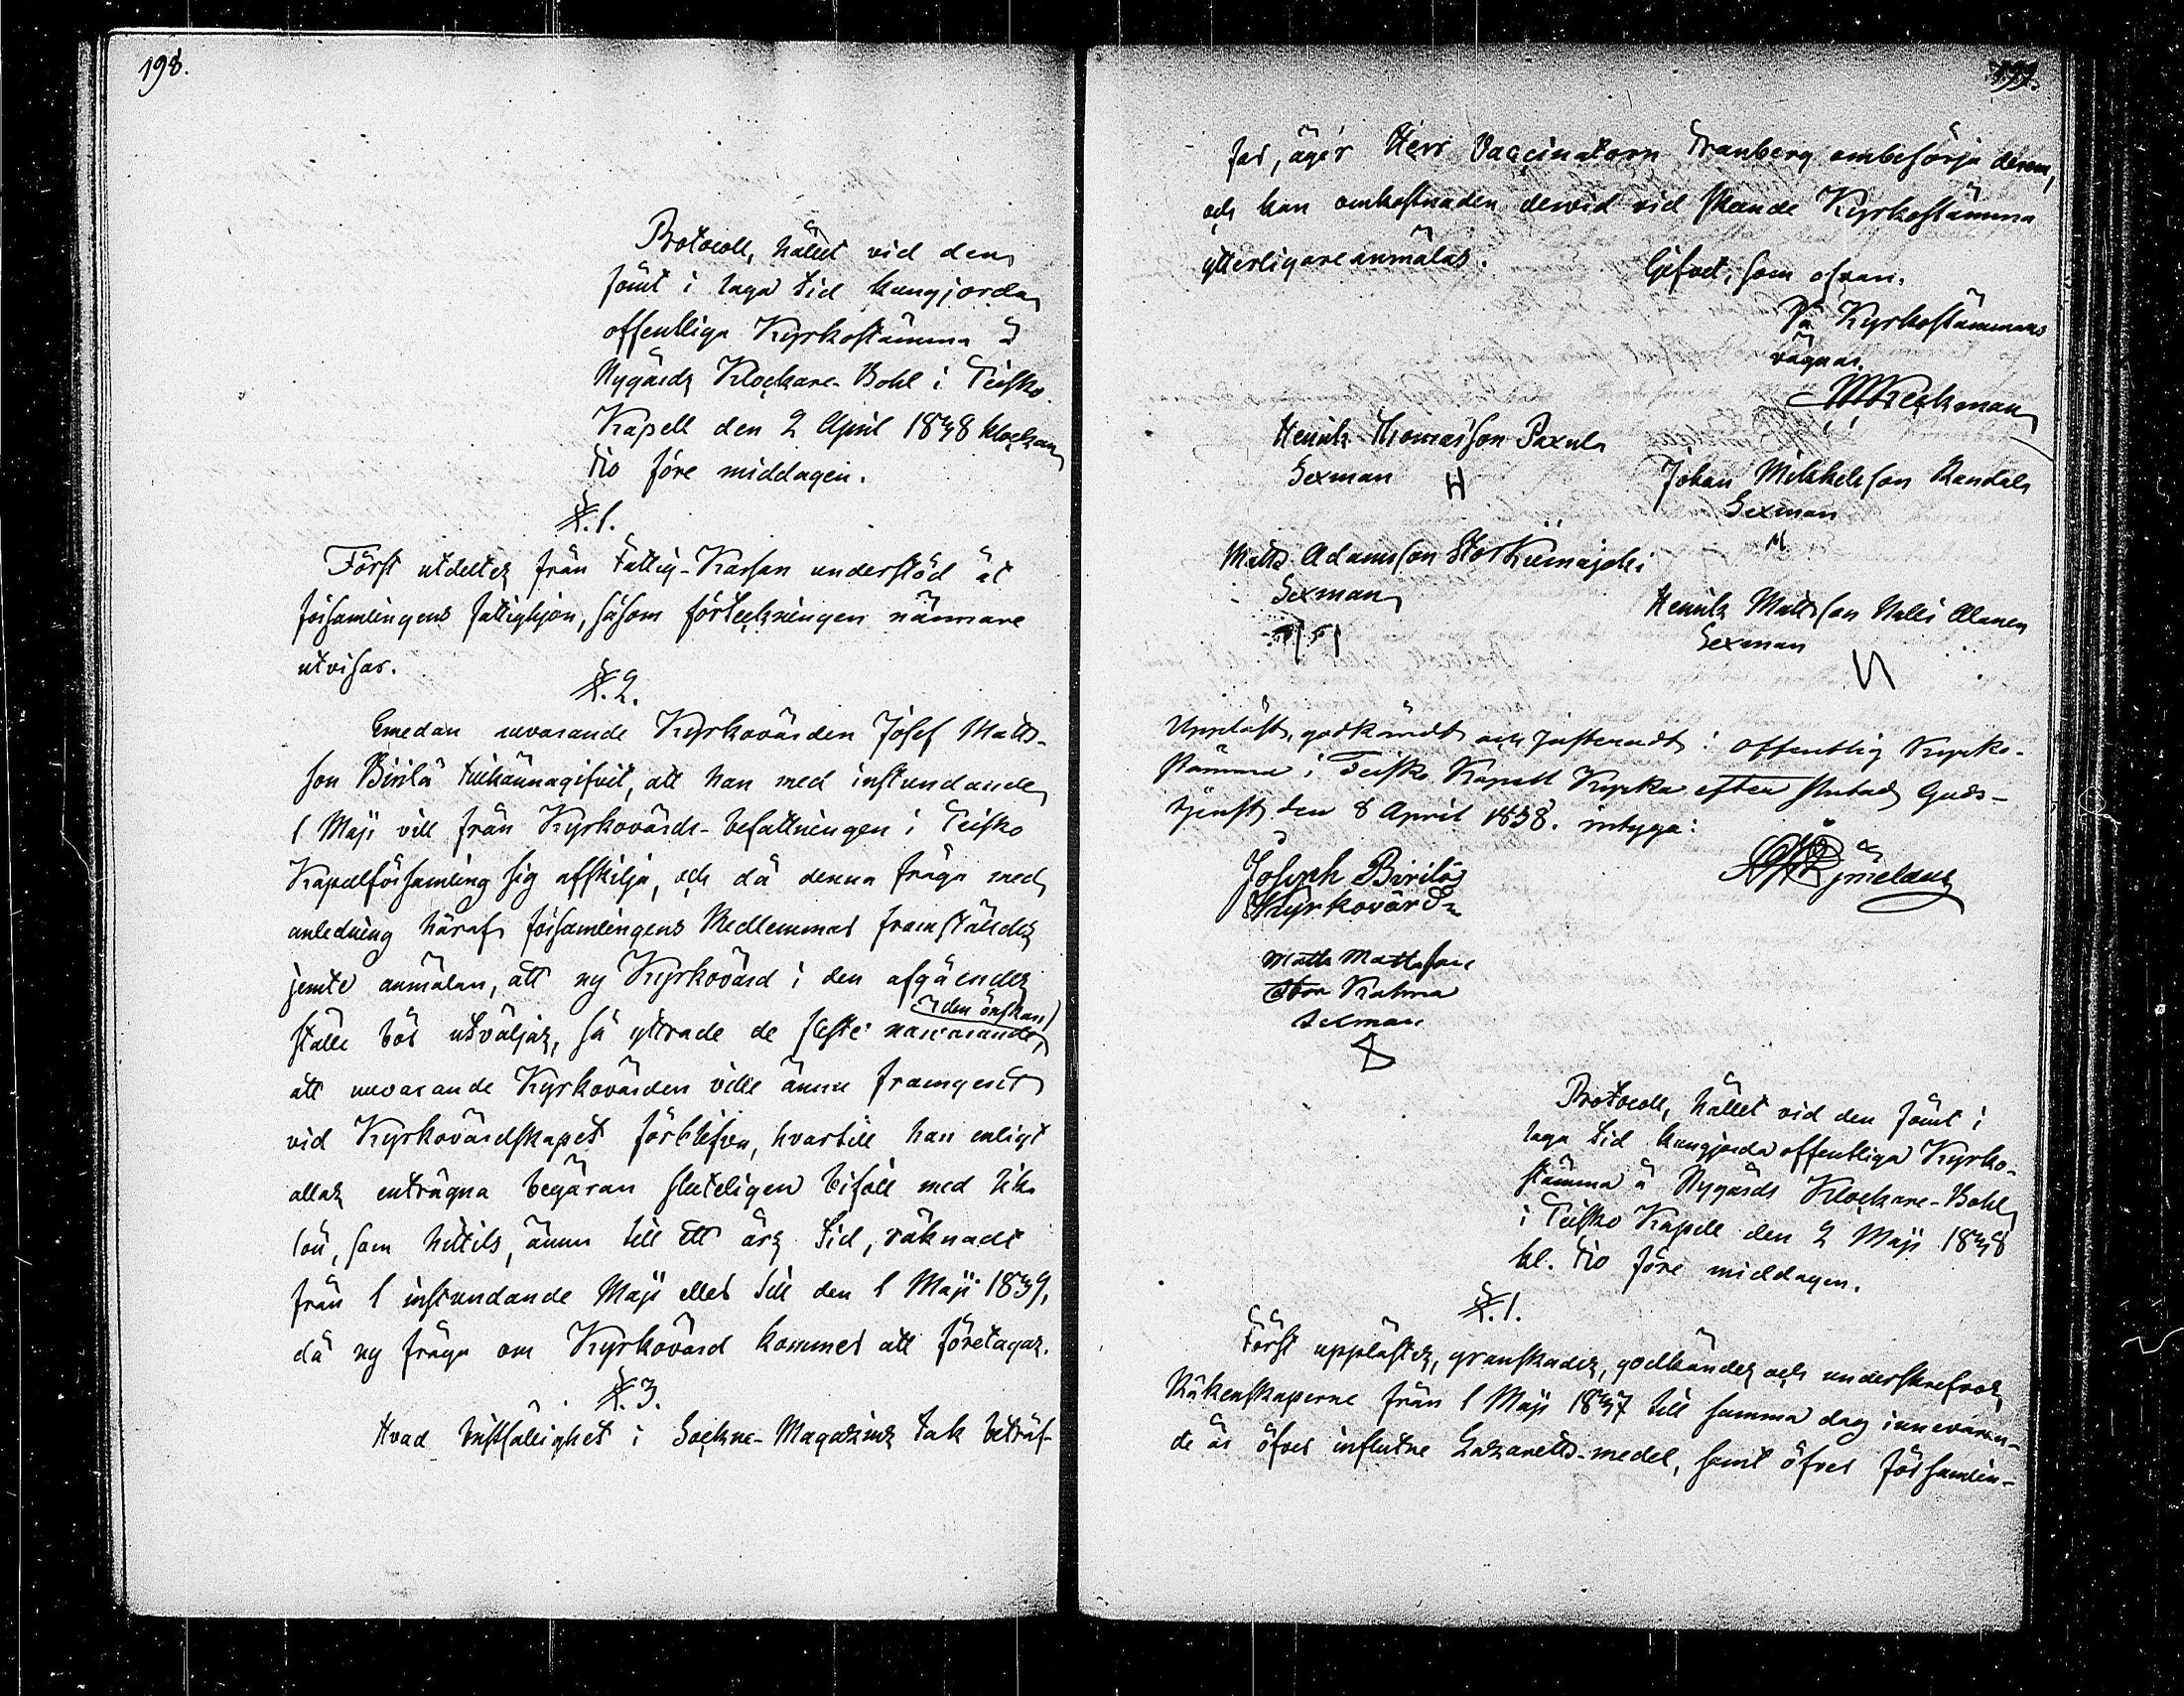 198.
Protocoll, hållet vid den
sömt i laga tid kungjorda
offentliga Kyrkostämma å
Nygårds Klockare-Bohl i Teisko
Kapell den 2 April 1838 klockan
tio före middagen.
§.1.
Först utdeltes från Fattig-Kassan understöd åt
församlingens fattighjon, såsom förteckningen närmare
utvisar.
§.2.
Emedan nuvarande Kyrkovärden Josef Matts-
son Birilä tillkännagifvit, att han med instundande
1 Maji vill från Kyrkovärds-befattningen i Teisko
Kapellförsamling sig afskilja, och då denna fråga med
anledning häraf församlingens Medlemmar framställdes
jemte anmälan, att ny Kyrkovärd i den afgåendes
ställe bör utväljas, så yttrade de fleste närvarande
den önskan,
att nuvarande Kyrkovärden ville ännu framgent
vid Kyrkovärdskapet förblifva, hvartill han enligt
allas enträgna begäran sluteligen biföll med lika
lön, som hittils, ännu till ett års tid, räknadt
från 1 instundande Maji eller till den 1 Maji 1839,
då ny fråga om Kyrkovärd kommer att företagas.
§.3.
Hvad bristfällighet i Sockne-Magasins tak beträf-
199.
far, äger Herr Vaccinatorn Tranberg ombesörja derom,
och kan omkostnaden dervid vid skeende Kyrkostämma
ytterligare anmälas.
Gifvet, som ofvan.
På Kyrkostämmans
vägnar.
Keckman
Henrik Thomasson Paxula
Sexman H
Johan Mikkelsson Randala
Sexman
Matts Adamsson Stor Kiimajoki
Sexman
Henrik Mattsson Alanen
Sexman
Uppläst, godkändt och justeradt i offentlig Kyrko-
stämma i Teisko Kapell Kyrka efter slutad Guds-
tjenst den 8 April 1838. intyga:
Joseph Birilä
Kyrkovärd
Matts Mattsson
Stor Kahma
sexman
Protocoll, hållet vid den sömt i
laga tid kungjorda offentliga Kyrko-
stämma å Nygårds Klockare-Bohl
i Teisko Kapell den 2 Maji 1838
kl. tio före middagen.
§.1.
Först upplästes, granskades, godkändes och underskrefvos
Räkenskaperne från 1 Maji 1837 till samma dag innevaran-
de år öfver influtne Lazaretts-medel, samt öfver församlin-